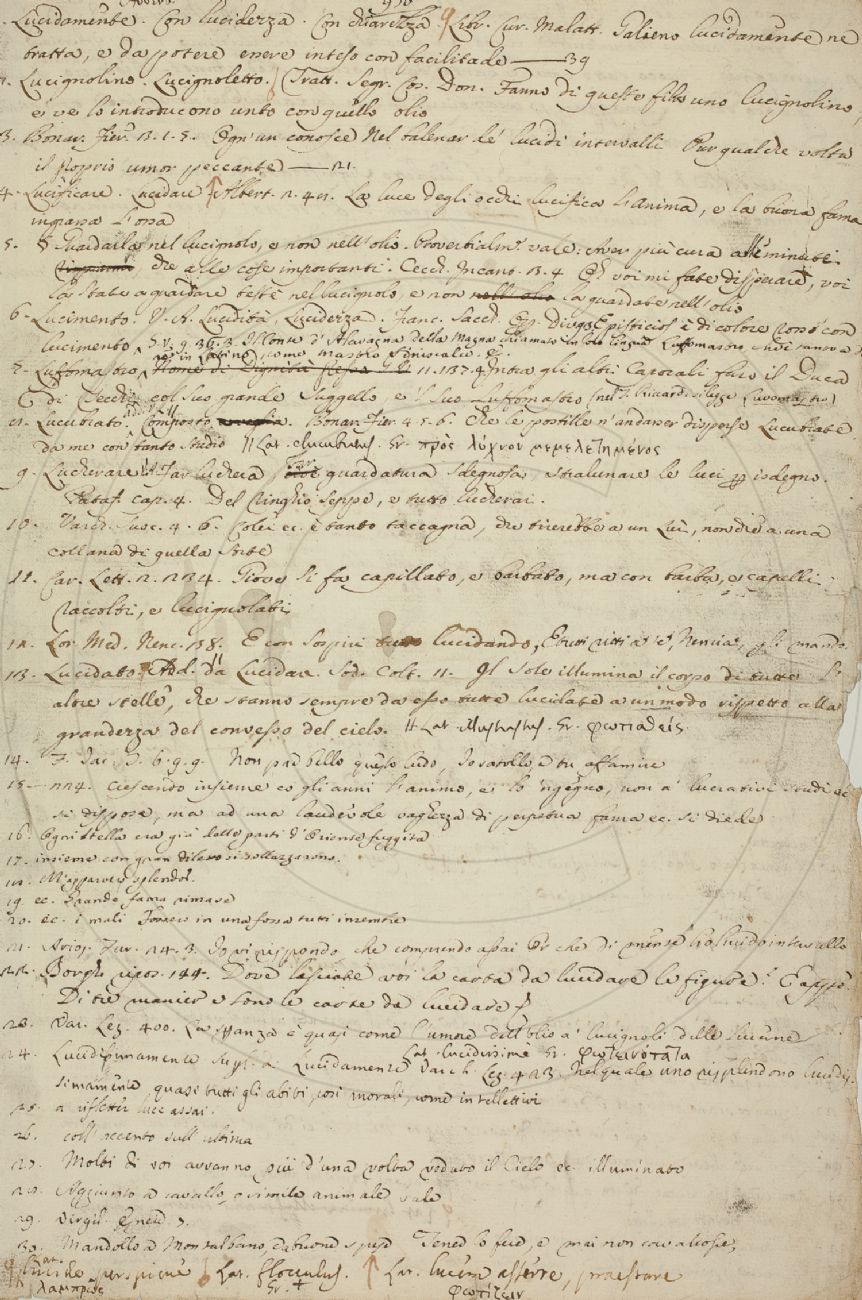 Lucidamente. Con lucidezza. Con chiarezza Libr. Cur. Malatt. Galieno lucidamente ne
tratta, e da potere essere inteso con facilitade — 39
Lucignolino. Lucignoletto. Tratt. Segr. Cos. Don. Fanno di queste fila uno lucignolino,
e ve lo introducono unto con quello olio
3. Bonar. Fier. 3. 1. 5. Ogn'un conosce Nel balenar de' lucidi intervalli Pur qualche volta
il proprio umor peccante — 21.
4. Lucificare. Lucidare Albert. 2. 42. La luce degli occhi lucifica l'anima, e la buona fama
ingrassa l'ossa
5. § Guardarla nel lucignolo, e non nell'olio. Proverbialm. vale: Aver più cura alle minute.
che alle cose importanti. Cecch. Incant. 3. 4 E voi mi fate disperare, voi
la state a guardare testè nel lucignolo, e non nell'olio la guardate nell'olio
6. Lucimento. V. A. Lucidità, Lucidezza. Franc. Sacch. Op. div. Epistites è di colore rosso con
lucimento
7. Luffomastro, Nome di Dignità 11. 137. 4 Intra gli altri Caporali fu il Duca
di col suo grande Suggello, e 'l suo Luffomastro (nel T. Riccardi si legge
8. Lucubrato. Composto Bonar. Fier. 4. 5. 6. Che le postille n'andasser disperse Lucubrate
da me con tanto studio Lat. elucubratus. Gr. πρὸς λύχνον μεμελετημένος
9. Lucherare. Far luchera, guardatura sdegnosa, stralunare le luci per isdegno.
Pataff. cap. 4. Del Ringhio seppe, e tutto lucherai.
10. Varch. Suoc. 4. 6. Colei ec. è tanto taccagna, che tirerebbe a un Luì, non che a una
collana di quella sorte
11. Car. Lett. 2. 234. Giove si fa capillato, e barbato, ma con barba, e capelli
raccolti, e lucignolati
12. Lor. Med. Nenc. 38. E con sospiri lucidando, E tutti ritti a te, Nencia, gli mando.
13. Lucidato. Add. da Lucidare. Sod. Colt. 11. Il sole illumina il corpo di tutte l'
altre stelle, che stanno sempre da esso tutte lucidate a un modo rispetto alla
grandezza del convesso del cielo. Lat. illustratus. Gr. φωτισθείς.
14. F. Iac. T. 6. 9. 9. Non par bello questo ludo, Io satollo, e tu affamire
15. 224. crescendo insieme co gli anni l'animo, e lo 'ngegno, non a' lucrativi studi ec
si dispose, ma ad una laudevole vaghezza di perpetua fama ec. si diede
16. Ogni stella era già dalle parti d'Oriente fuggita
17. insieme con gran diletto si sollazzarono.
18. M'apparver splendor.
19. ec. Grande fama rimase
20. ec. i mali Torneo in una fossa tutti insembre
21. Arios. Fur. 24. 3. Io vi rispondo che comprendo assai Or che di mente ho lucido intervallo
22. Borgh. ripos. 144. Dove lasciate voi la carta da lucidare le figure? E appr.
Di tre maniere sono le carte da lucidare
23. Var. Lez. 400. La speranza è quasi come l'umore dell'olio a' lucignoli delle lucerne
24. Lucidissimamente Superl. di Lucidamente Varch. Lez. 423. Nel quale uno risplendono lucidis-
Lat. lucidissime Gr. φωτεινότατα
simamente quasi tutti gli abiti, così morali, come intellettivi
25. a riflettere luce assai.
26. coll'accento sull'ultima
27. Molti di voi avranno più d'una volta veduto il Cielo ec. illuminato
28. Aggiunto a cavallo, o simile animale vale
29. Virgil. Eneid.
30. Mandollo a Montalbano, da buond Tened lo feid, e mai non cavalcosse;
lucide perspicue Lat. flocculus. Lat. lucem afferre, praestare
λαμπρῶς Gr. + φωτίζειν